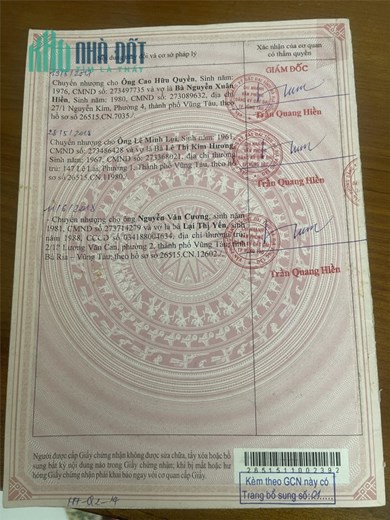 NHÀ ĐẤT
và cơ sở pháp lý
Xác nhận của cơ quan
có thẩm quyền
GIÁM ĐỐC
Chuyển nhượng cho Ông Cao Hữu Quyền, Sinh năm:
1976, CMND số: 273497735 và vợ là Bà Nguyễn Xuân
Hiền, Sinh năm: 1980, CMND số: 273089632, địa chỉ:
27/1 Nguyễn Kim, Phường 4, thành phố Vũng Tàu, theo
hồ sơ số 26515.CN.7035./.
Trần Quang Hiền
Chuyển nhượng cho Ông Lê Minh Lui, Sinh năm: 1961,
CMND số: 273486428 và vợ là Bà Lê Thị Kim Hương,
Sinh năm: 1967, CMND số: 273368021, địa chỉ thường
trú: 147 Lê Lai, Phường 1, Thành phố Vũng Tàu, theo hồ
sơ số 26515.CN.11980./.
Trần Quang Hiền
- Chuyển nhượng cho ông Nguyễn Văn Cương, sinh năm
1981, CMND số 273714279 và vợ là bà Lại Thị Yến, sinh
năm 1988, CCCD số 034188004634, địa chỉ thường trú
Lương Văn Can, phường 2, thành phố Vũng Tàu, tỉnh
Bà Rịa – Vũng Tàu; theo hồ sơ số 26515.CN.12602./.
Trần Quang Hiền
Người được cấp Giấy chứng nhận không được sửa chữa, tẩy xóa hoặc bổ
sung bất kỳ nội dung nào trong Giấy chứng nhận; khi bị mất hoặc hư
hỏng Giấy chứng nhận phải khai báo ngay với cơ quan cấp Giấy.
2651511002392
Kèm theo GCN này có
Trang bổ sung số: 01